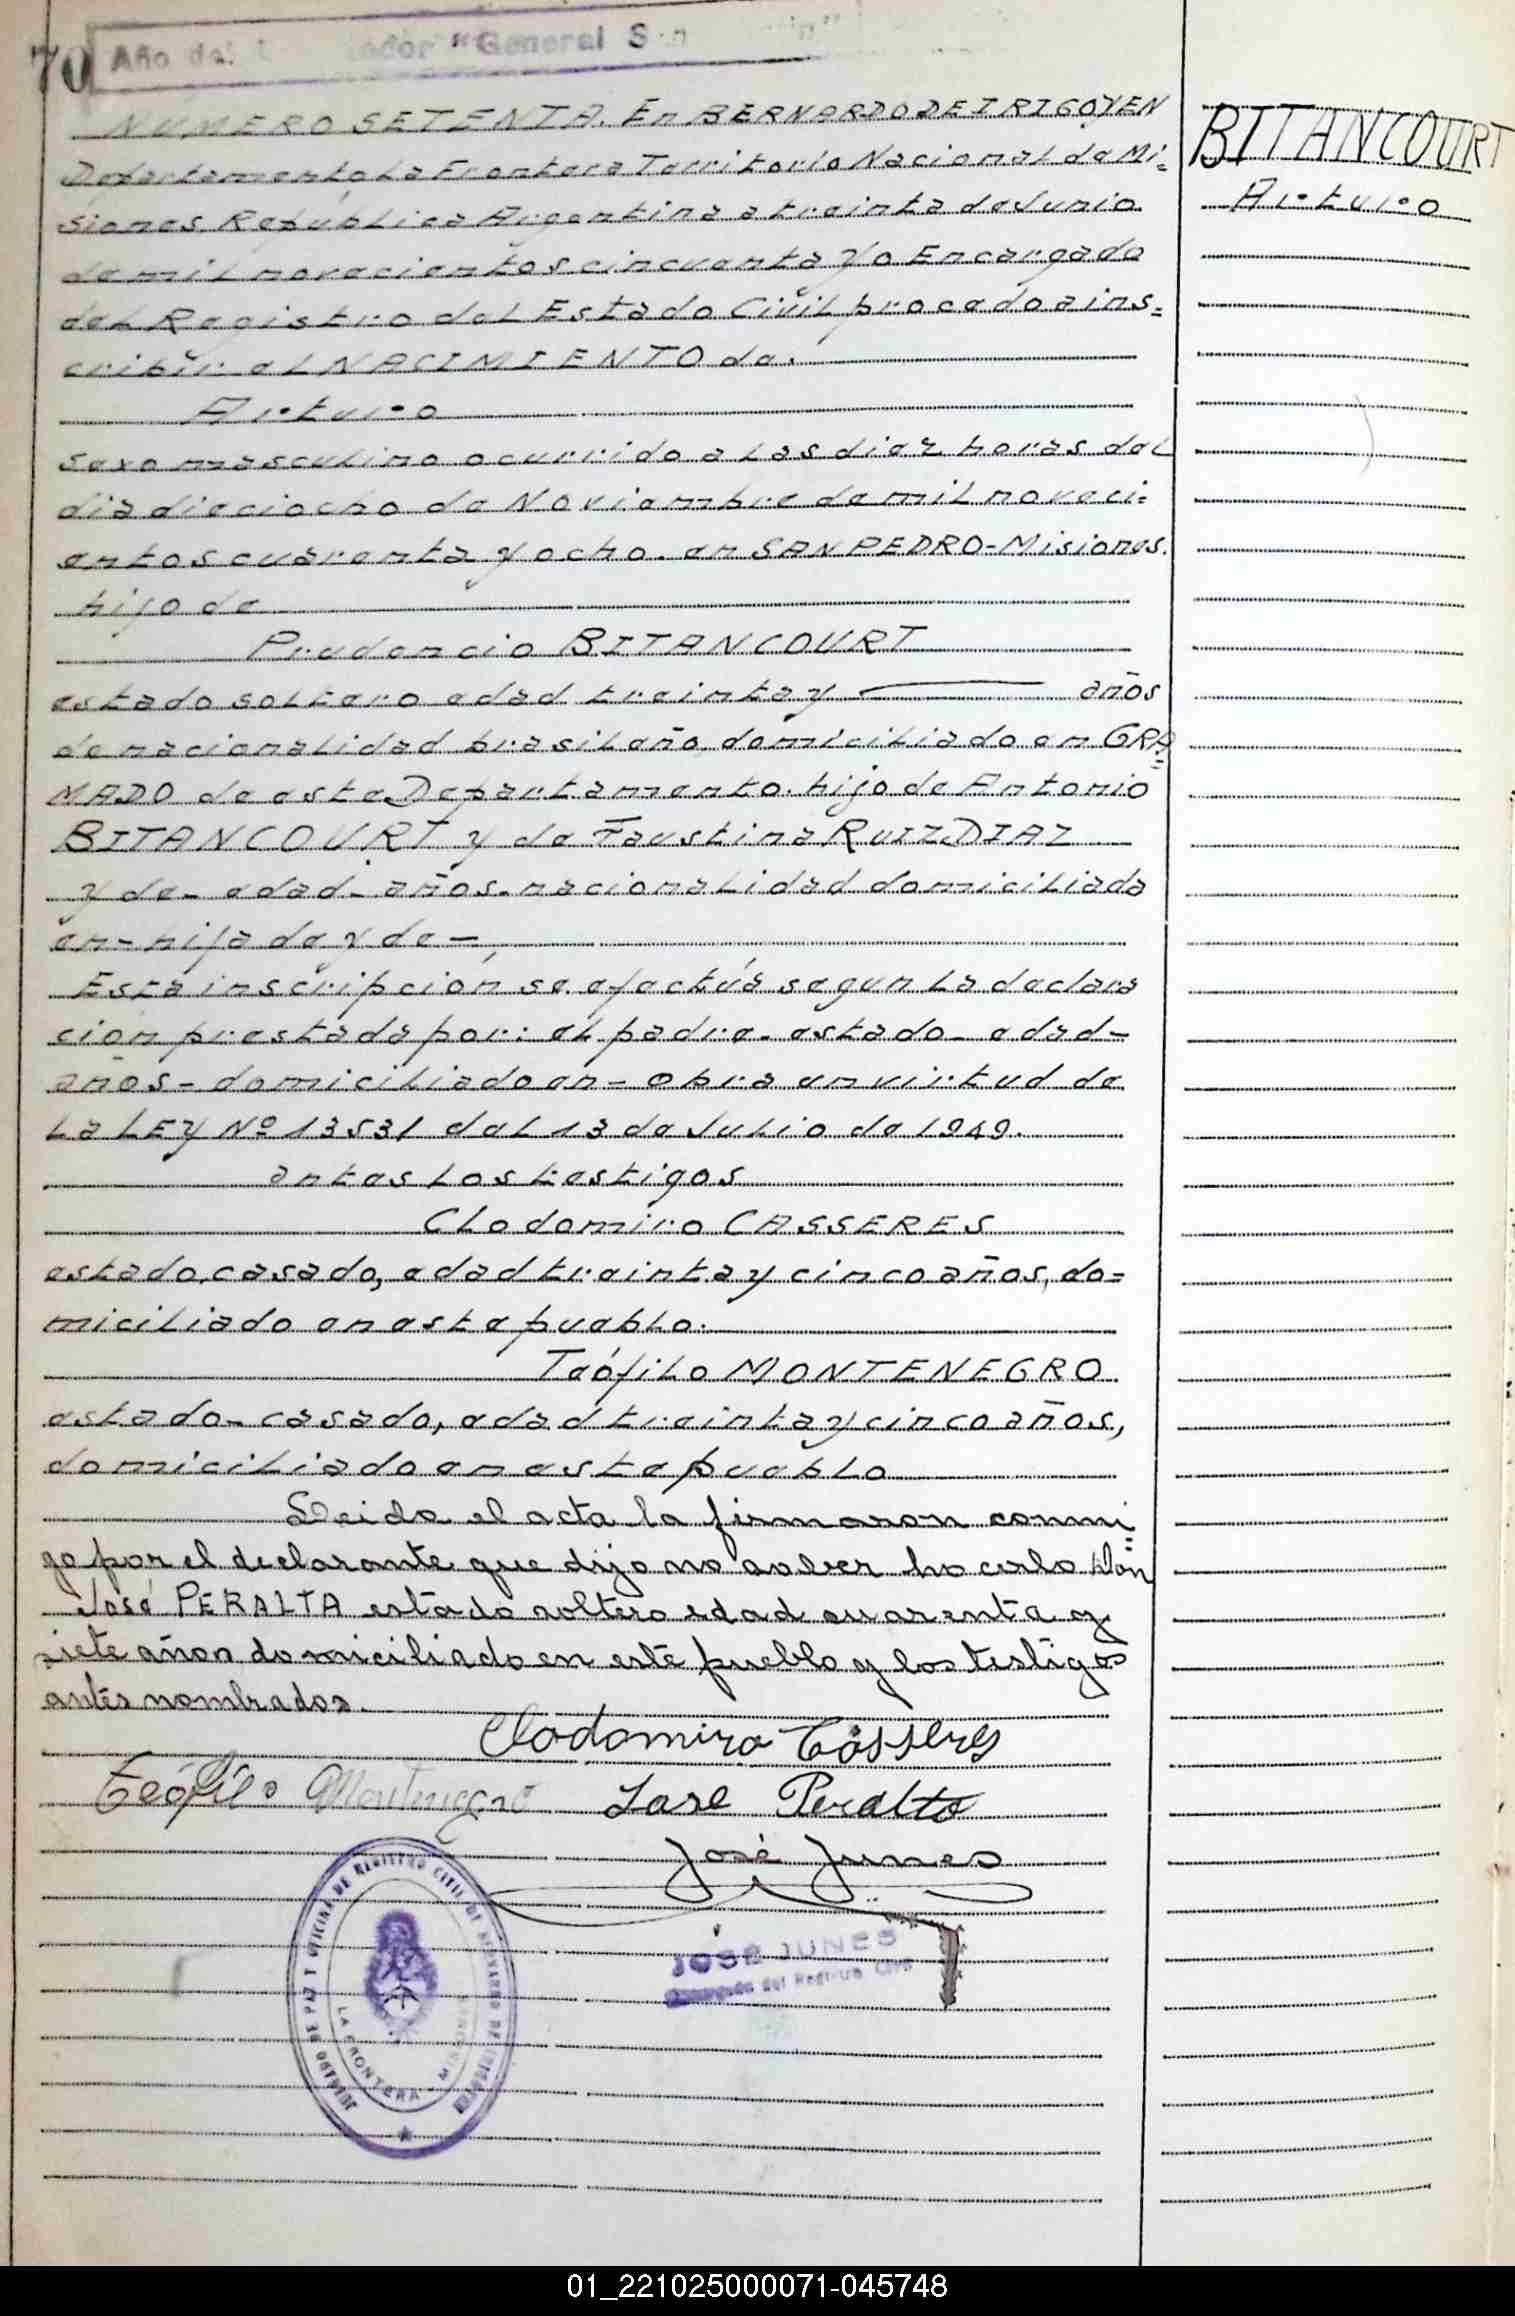 70
Año del Libertador "General San Martín"
NUMERO SETENTA. En BERNARDO DE IRIGOYEN
Departamento La Frontera Territorio Nacional de Mi=
siones República Argentina a treinta de Junio
de mil novecientos cincuenta Yo Encargado
del Registro del Estado Civil procedo a ins=
cribir el NACIMIENTO de.
Arturo
sexo masculino ocurrido a las diez horas del
dia dieciocho de Noviembre de mil noveci=
entos cuarenta y ocho. en SAN PEDRO-Misiones.
hijo de
Prudencio BITANCOURT
estado soltero edad treinta y — años
de nacionalidad brasileño, domiciliado en GRA=
MADO de este Departamento. hijo de Antonio
BITANCOURT y de Faustina RUIZ DIAZ
y de- edad- años. nacionalidad domiciliada
en- hija de y de -,
Esta inscripción se efectúa segun la declara
ción prestada por: el padre- estado- edad-
años- domiciliado en- Obra en virtud de
La LEY Nº 13531 del 13 de Julio de 1949.
antes los testigos
Clodomiro CASSERES
estado, casado, edad treinta y cinco años, do=
miciliado en este pueblo.
Teófilo MONTENEGRO
estado- casado, edad treinta y cinco años,
domiciliado en este pueblo
Leida el acta la firmaron conmi=
go por el declarante que dijo no saber ha cerlo Don
José PERALTA estado soltero edad cuarenta y
siete años domiciliado en este pueblo y los testigos
antes nombrados.
Clodomiro Cásseres
Teófilo Montenegro José Peralta
José Junes
JOSE JUNES
Encargado del Registro Civil
JUZGADO DE PAZ Y OFICINA DE REGISTRO CIVIL DE BERNARDO DE IRIGOYEN
LA FRONTERA - MISIONES
BITANCOURT
Arturo
01_221025000071-045748